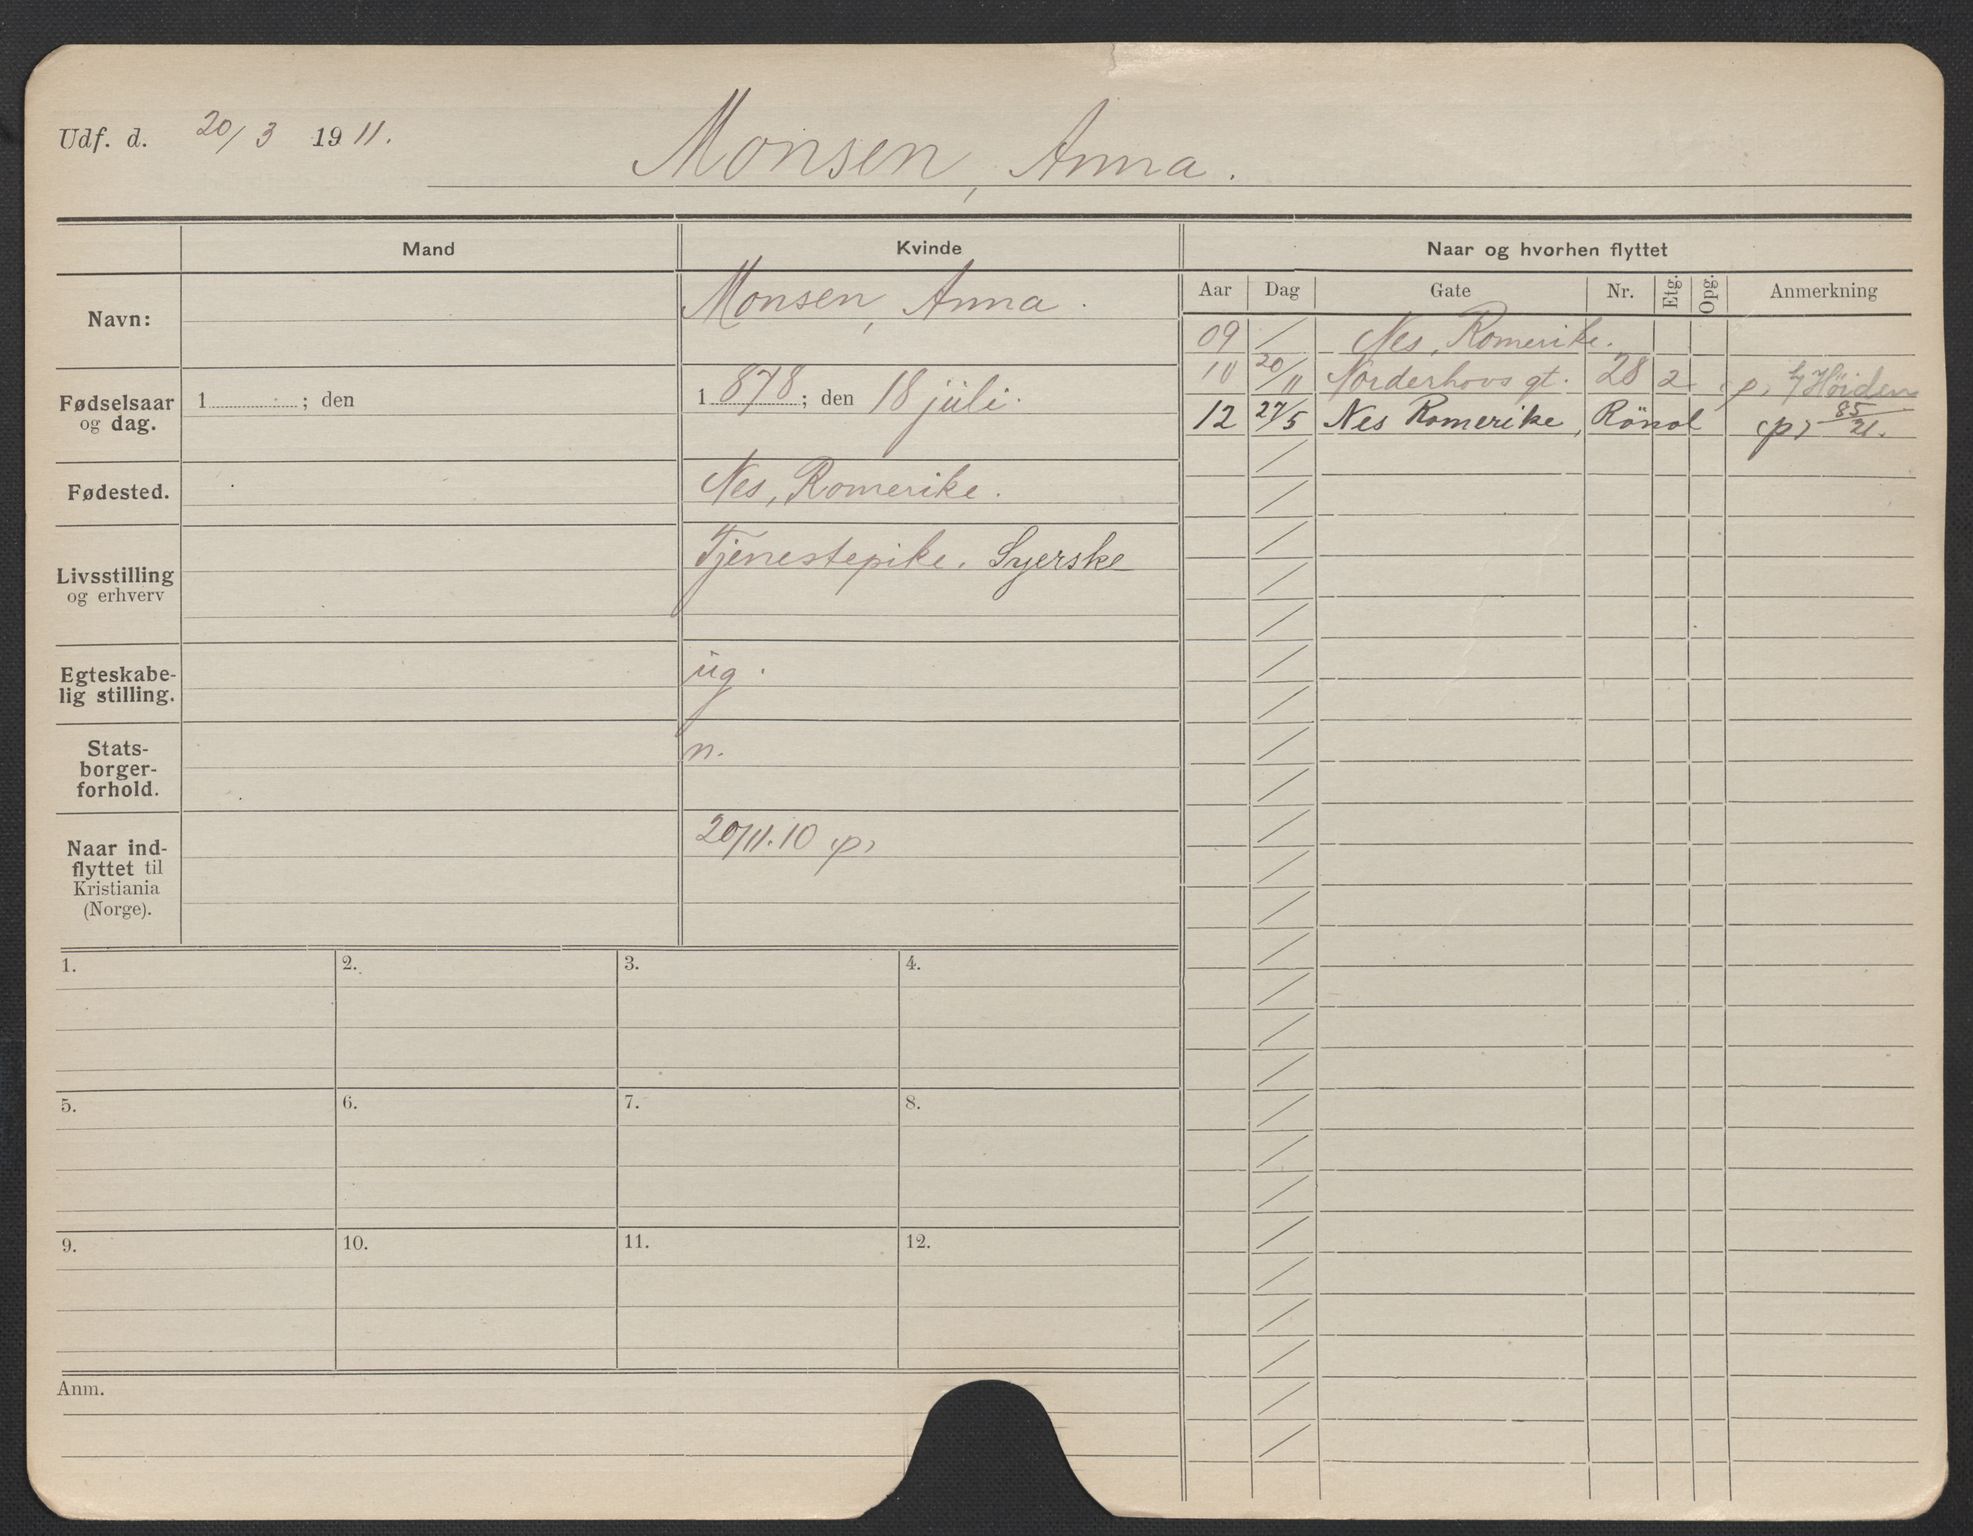 Udf. d. 20/3 1911.
Monsen, Anna.
Mand
Kvinde
Naar og hvorhen flyttet
Navn:
Monsen, Anna.
Aar Dag Gate Nr. Etg. Opg. Anmerkning
09 / Nes, Romerike.
10 20/11 Norderhovs gt. 28 2 (p) Höiden
12 27/5 Nes Romerike, (p) 85/21.
Fødselsaar
og dag.
1 ; den
1878; den 18 juli.
Fødested.
Nes, Romerike.
Livsstilling
og erhverv
Tjenestepike. Syerske
Egteskabe-
lig stilling.
ug.
Stats-
borger-
forhold.
n.
Naar ind-
flyttet til
Kristiania
(Norge).
20/11.10 (p)
1. 2. 3. 4.
5. 6. 7. 8.
9. 10. 11. 12.
Anm.